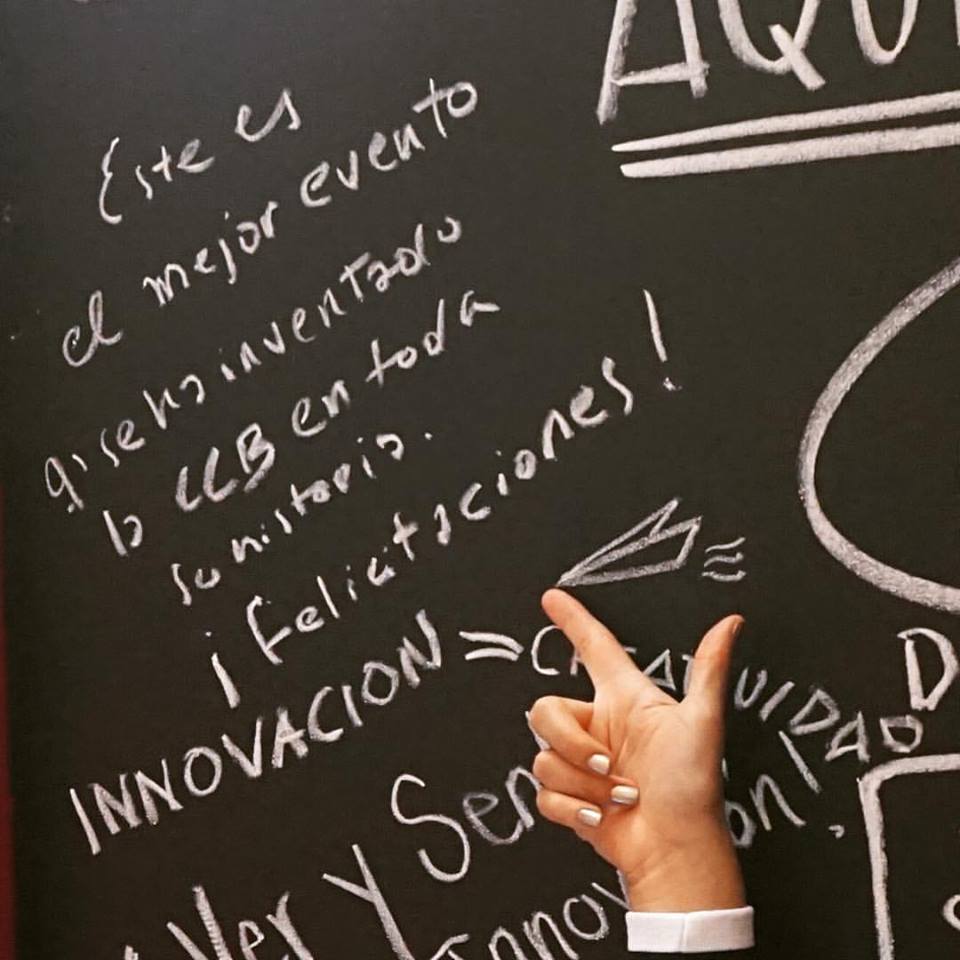 Este es
el mejor evento
q' se ha inventado
la CCB en toda
su historia.
¡felicitaciones!
INNOVACION = CREATIVIDAD
Ver y Sen
Innov
AQU
D